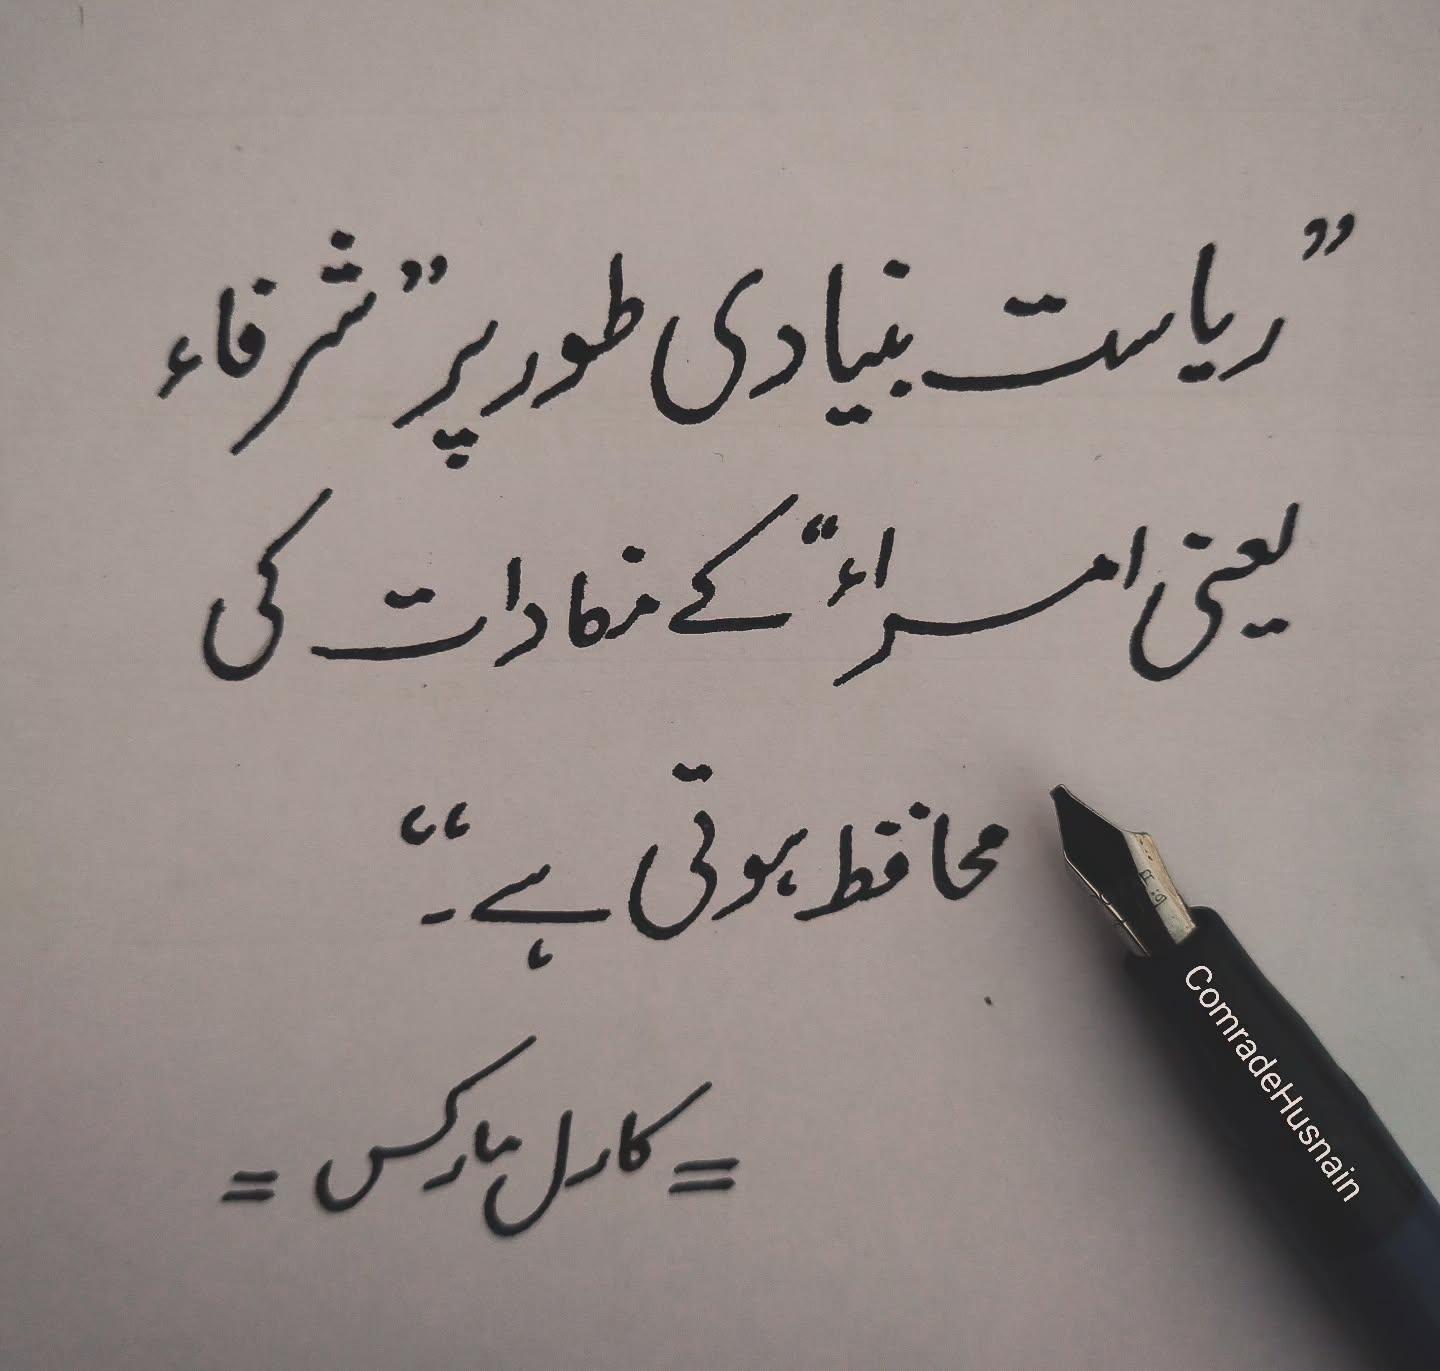 ”ریاست بنیادی طور پر ”شرفاء
یعنی امراء“ کے مفادات کی
محافظ ہوتی ہے۔“
= کارل مارکس =
ComradeHusnain